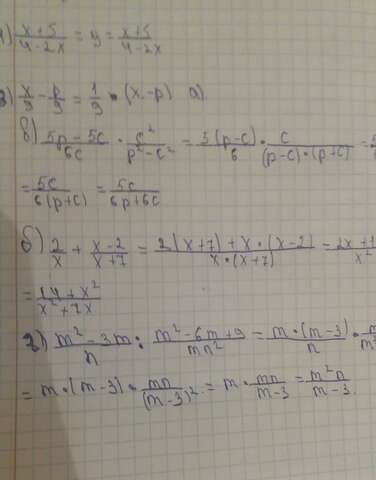 1) x+5/4-2x = y = x+5/4-2x
3) x/9 - p/9 = 1/9 • (x-p) a)
в) 5p-5c/6c • c²/p²-c² = 5(p-c)/6 • c/(p-c)•(p+c) =
= 5c/6(p+c) = 5c/6p+6c
б) 2/x + x-2/x+7 = 2(x+7)+x•(x-2)/x•(x+7) = 2x+1
= 14+x²/x²+7x
г) m²-3m/n : m²-6m+9/mn² = m•(m-3)/n •
= m•(m-3)•mn/(m-3)² = m•mn/m-3 = m²n/m-3.